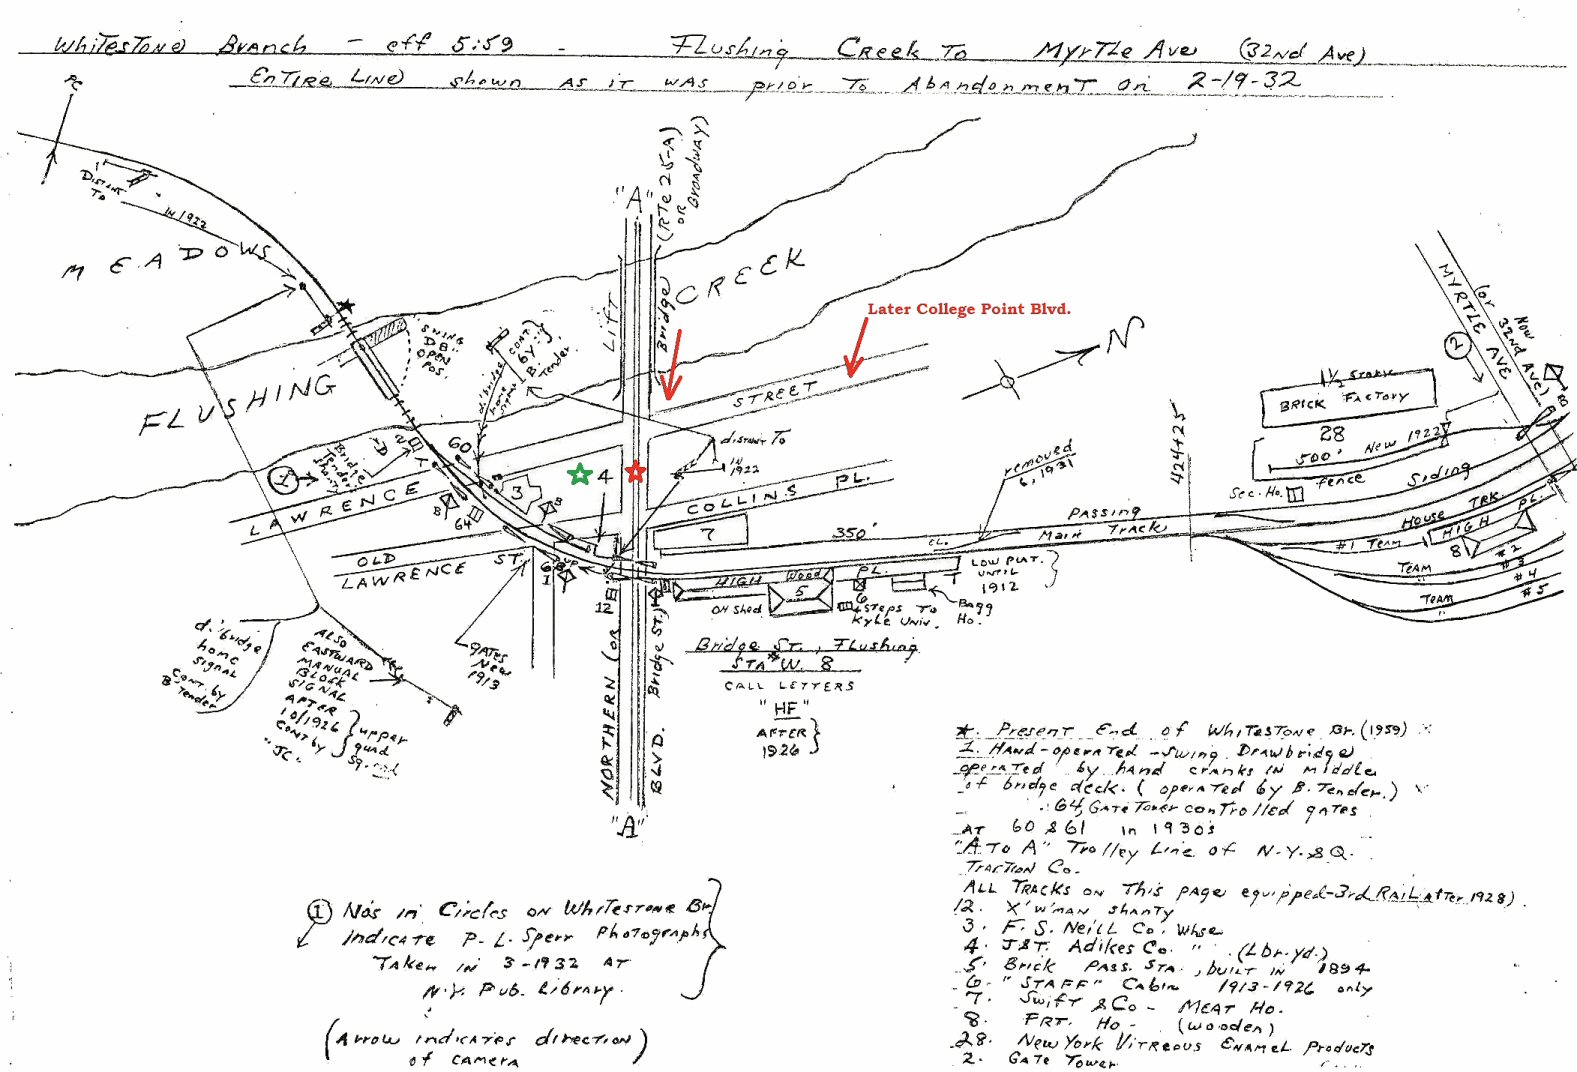 Whitestone Branch - eff 5:59 - Flushing Creek To Myrtle Ave (32nd Ave)
Entire Line shown as it was prior To Abandonment on 2-19-32
Distant To
IN 1922
MEADOWS
FLUSHING
CREEK
"A"
Lift Bridge (RTe 25-A) or Broadway)
Swing DB:: open pos.
d.'bridge home signal
cont. by: B. Tender
Later College Point Blvd.
STREET
N
MYRTLE AVE
(or Now 32nd Ave)
2
1½ Story
BRICK FACTORY
28
500' New 1922
fence
Sec. Ho.
Siding
House Trk.
HIGH PL.
8
#1 Team
Team #2
#3
Team #4
Team #5
424425
removed 6, 1931
distant To
IN 1922
Bridge Tender Shanty
1
2
60
64
3
4
LAWRENCE
OLD LAWRENCE ST.
COLLINS PL.
7
350'
Passing
Main Track
CL.
61
12
HIGH
Wood
PL.
5
OH Shed
6
Steps To Kyle Univ.
Bagg Ho.
LOW PLAT. UNTIL 1912
gates New 1913
Bridge St., Flushing
STA # W. 8
CALL LETTERS
"HF"
AFTER 1926
NORTHERN (or Bridge St.) BLVD.
"A"
d.'bridge home signal cont. by B. Tender
ALSO
EASTWARD
MANUAL
BLOCK
SIGNAL
AFTER
10/1926
CONT by
"JC"
upper quad sg.
*. Present End of Whitestone Br. (1959)
1. Hand-operated - Swing Drawbridge
operated by hand cranks in middle
of bridge deck. (operated by B. Tender.)
64, Gate Tower controlled gates
AT 60 & 61 in 1930s
"A To A" Trolley Line of N.Y. & Q.
Traction Co.
All Tracks on This page equipped - 3rd Rail after 1928)
12. X'W'man Shanty
3. F. S. Neill Co. Whse
4. J&T. Adikes Co. " (Lbr. yd.)
5. Brick Pass. Sta., built in 1894
6. "STAFF" Cabin 1913-1926 only
7. Swift & Co - Meat Ho.
8. Frt. Ho - (wooden)
28. New York Vitreous Enamel Products
2. Gate Tower
① Nos in Circles on Whitestone Br.
Indicate P. L. Sperr Photographs
Taken in 3-1932 at
N.Y. Pub. Library.
(Arrow indicates direction
of camera